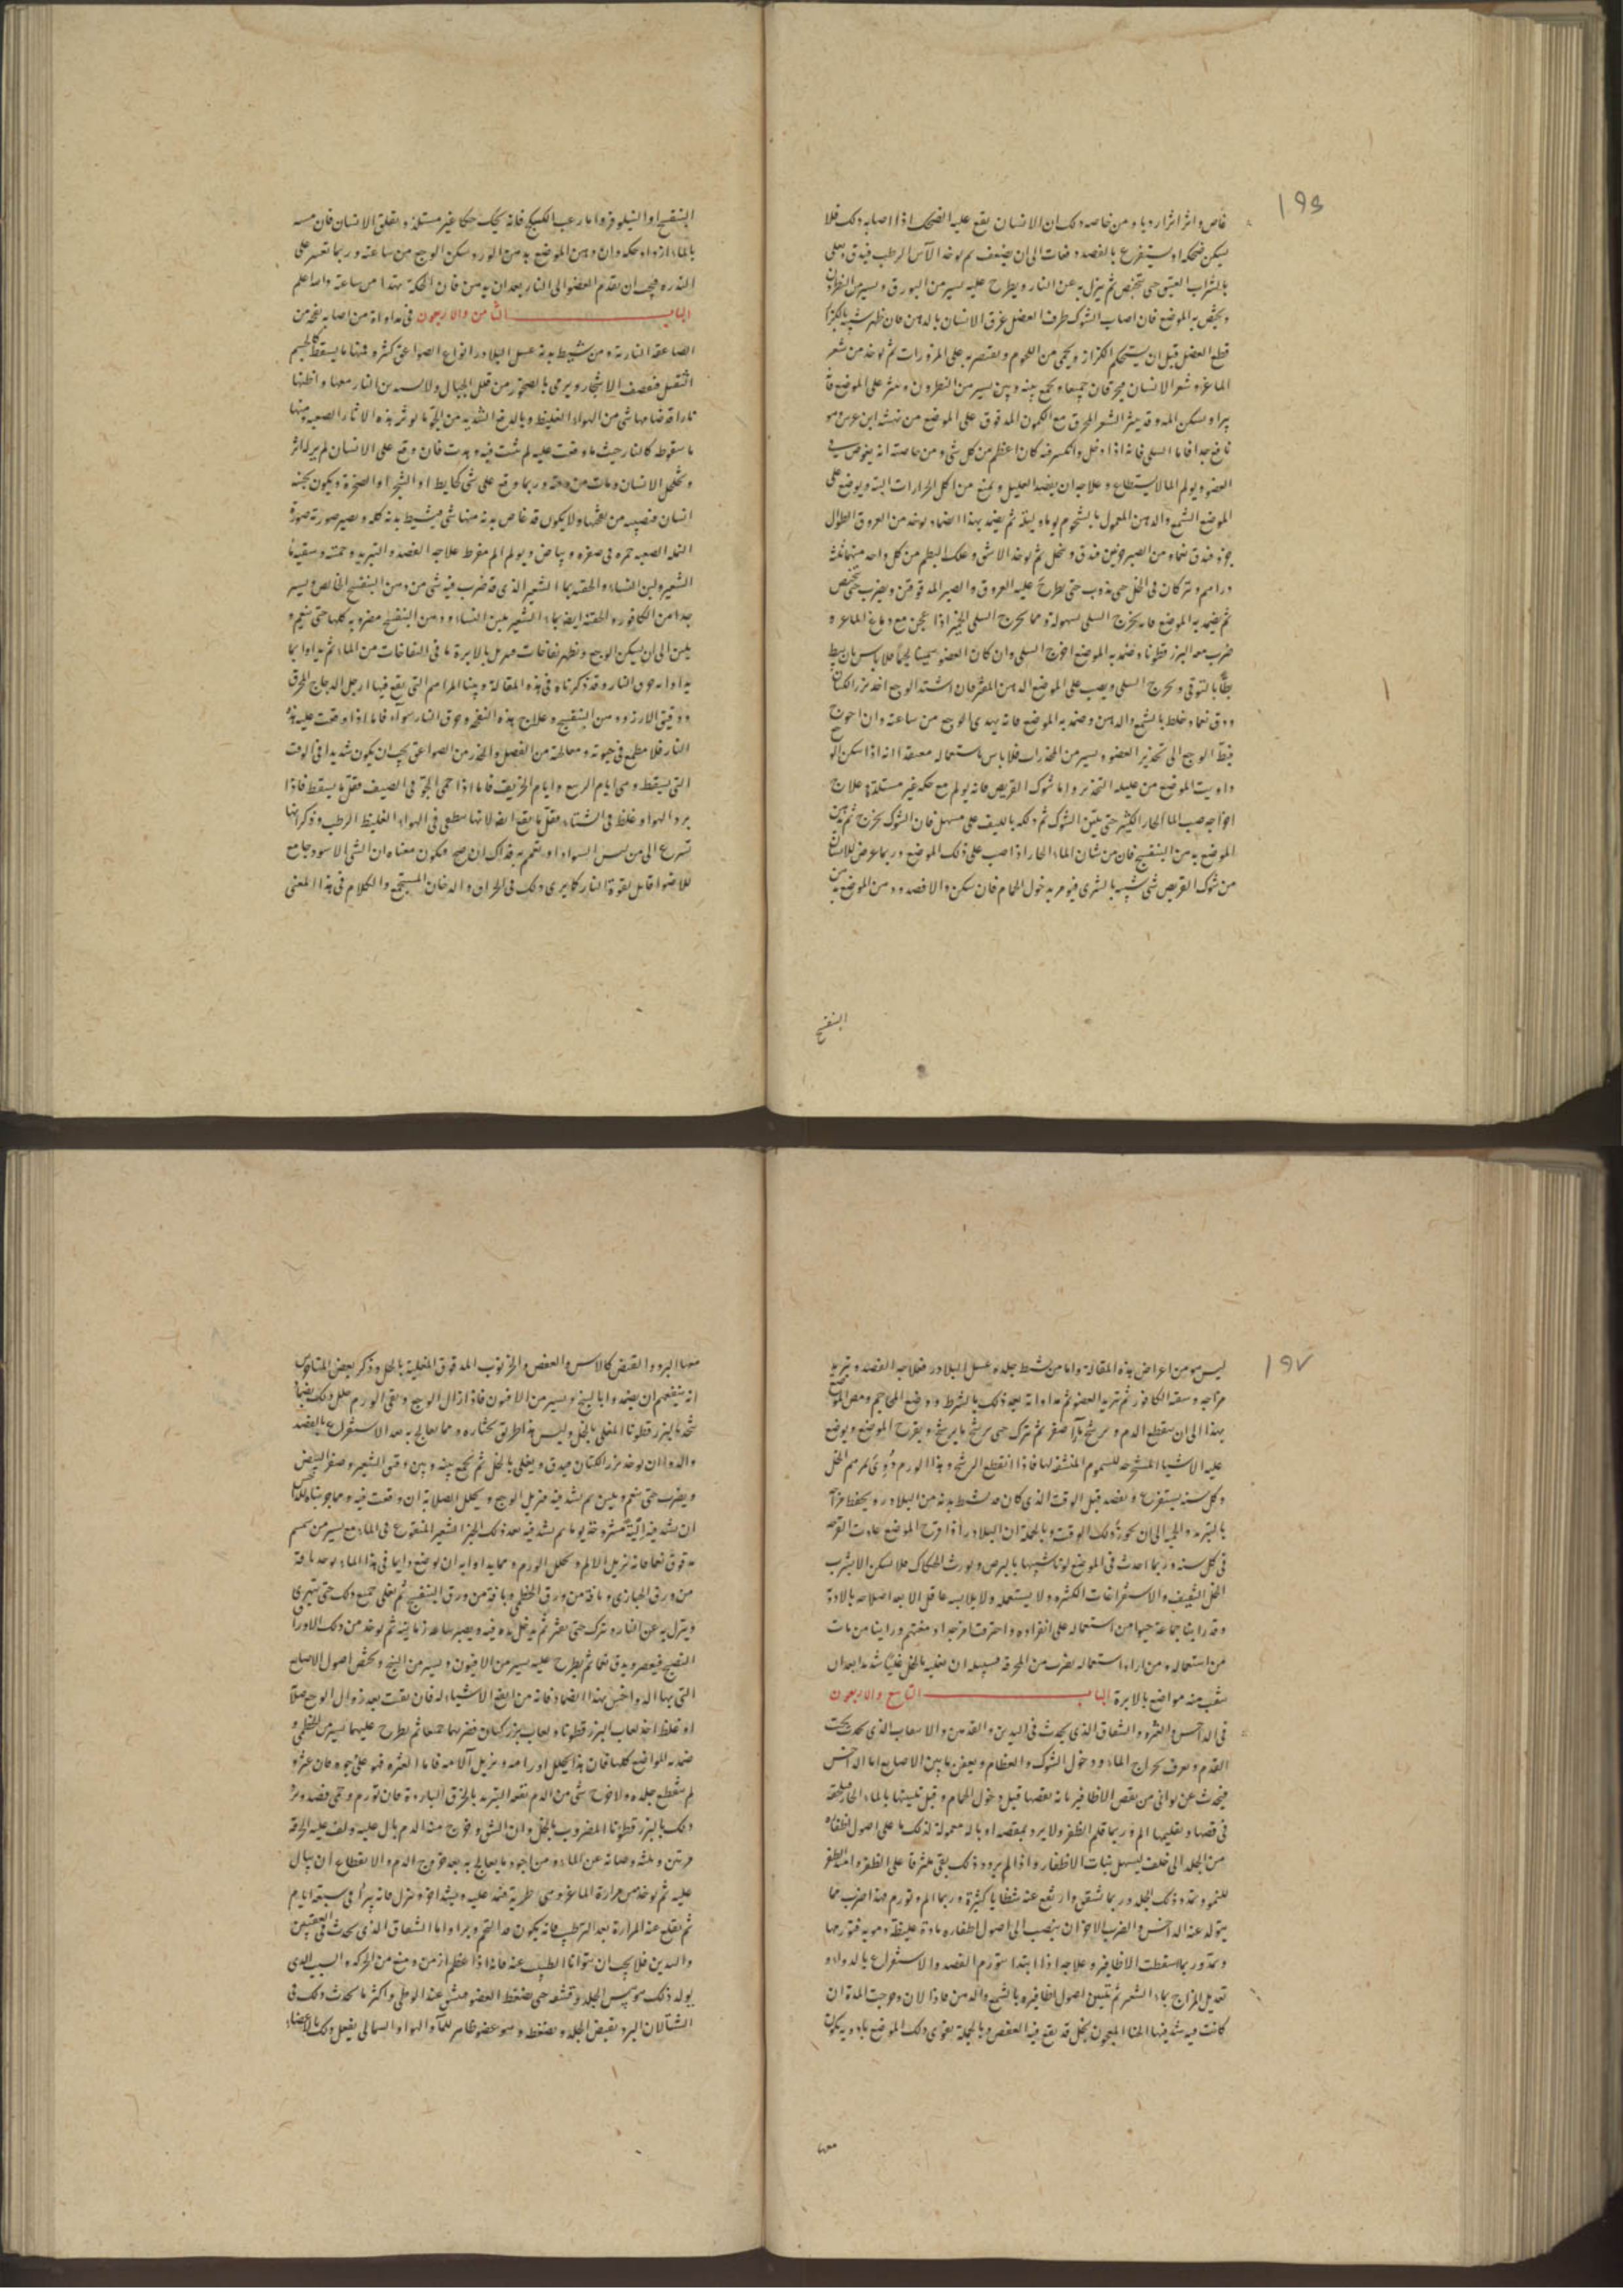 ١٩٦
غاص واثر اثرا رديا ومن خاصه ذلك ان الانسان يقع عليه الضحك اذا اصابه ذلك فلا
يسكن ضحكه او يستفرغ بالفصد الى ان يضعف ثم يوخذ الآس الرطب فيدق ويغلى
بالشراب العتيق حتى ثم ينزل به عن النار ويطرح عليه يسير من البورق ويسير من النطرون
الموضع فان اصاب الشوك طرف العضل عرق الانسان بالدهن فان ظهر شبيه بالكزاز
قطع العضل قبل ان يستحكم الكزاز ويحمى من اللحوم ويقتصر به على المزورات ثم يوخذ من شعر
الماعز وشعر الانسان فيحرقان جميعا ويجمع بينه وبين يسير من النطرون وينثر على الموضع
ويسكن الم وقد ينثر الشعر المحرق مع الكمون المدقوق على الموضع من نهشه ابن عرس وهو
نافع جدا فاما السلى فانه اذا دخل وانكسر فيه كان اعظم من كل شى ومن خاصته انه يغوص فى
العضو ويولم الما لا يستطاع وعلاجه ان يفصد العليل ويمنع من اكل الحرارات البته ويوضع على
الموضع الشمع والدهن المعمول بالشحوم يوما وليلة ثم يضمد بهذا الضماد يوخذ من العروق الطوال
فتدق نعما ومن الصبر جزين فيدق وينخل ثم يوخذ الاشق وعلك البطم من كل واحد منهما ثلثة
دراهم ويتركان فى الخل حتى يذوب حتى يطرح عليه العروق والصبر المدقوقين ويضرب حتى
ثم يضمد به الموضع فانه يخرج السلى بسهولة ومما يخرج السلى الخبز اذا عجن مع دماغ الماعز و
ضرب معه البزر قطونا وضمد به الموضع اخرج السلى وان كان العضو سمينا لحما فلا باس بان يبط
بطا بالتوقى ويخرج السلى ويصب على الموضع الدهن المفتر فان اشتد الوجع اخذ بزر الكتان
ودق نعما وخلط بالشمع والدهن وضمد به الموضع فانه يهدى الوجع من ساعته وان احوج
فيه الوجع الى تخدير العضو بيسير من المخدرات فلا باس باستعماله اذا سكن الو
داويت الموضع من التخدير واما شوك القريص فانه يولم مع حكه غير مستلذة علاج
اخراجه صب الما الحار الكثير حتى يلين الشوك ثم دلكه بالليف على مهل فان الشوك يخرج ثم
الموضع بدهن البنفسج فان من شان الماء الحار اذا صب على ذلك الموضع وربما عرض للانسان
من شوك القريص شى شبيه بالشرى فيومر بدخول الحمام فان سكن والا فصد ودهن الموضع بدهن
البنفسج
البنفسج او النيلوفر واما زغب الكبيكج فانه يحك حكا غير مستلذ ويقلق الانسان فان مسه
بالماء ازداد حكه وان دهن الموضع بدهن الورد سكن الوجع من ساعته وربما تعسر على
الندره فيجب ان يقدم العضو الى النار بعد ان يدهن فان الحكة تهدا من ساعته والله اعلم
الباب الثامن والاربعون فى مداواة من اصابه نفحه من
الصاعقه النارية ومن شيط بدنه عسل البلادر انواع الصواعق كثيره فمنها ما يسقط كالجسم
الثقيل فيقصف الاشجار ويرمى بالصخور من قلل الجبال ولا من النار معها واظنها
من الهواء الغليظ وبالدفع الشديد من الجو ما يوثر بهذه الاثار الصعبه ومنها
ما سقوطه كالنار حيث ما وقعت عليه لم ثبت فيه وهدت فان وقع على الانسان لم ير له اثر
الانسان ومات من وقته وربما وقع على شى كحايط او الشجر او الصخرة ويكون بجنبه
انسان فيصيبه من نفحها ولا يكون قد غاص بدنه منها شى فيشيط بدنه كله ويصير صورته صورة
النملة الصعبه حمره فى صفره وبياض ويولم الم مفرط علاجه الفصد والتبريد وحميته وسقيه ماء
الشعير ولبن النساء والحقنه بماء الشعير الذى قد ضرب فيه شى من دهن البنفسج الخالص ويسير
جدا من الكافور والحقنة ايضا بماء الشعير بلبن النساء ودهن البنفسج مضروبه كلها حتى ينعم و
يلين الى ان يسكن الوجع وتظهر نفاخات فيبزل بالابرة ما فى النفاخات من الماء ثم يداوا بما
يداوا به حرق النار وقد ذكرناه فى هذه المقالة وبينا المراهم التى يقع فيها ارجل الدجاج المحرق
ودقيق الارز ودهن البنفسج وعلاج هذه النفحه وحرق النار سوآء فاما اذا وقعت عليه هذه
النار فلا مطمع فى حيوته ومعالجته من الفصل والحذر من الصواعق يجب ان يكون شديدا فى الوقت
التى يسقط وهى ايام الربيع وايام الخريف فاما اذا حمى الجو فى الصيف فقل ما يسقط فاذا
برد الهواء وغلظ فى الشتاء فقل ما يقع ايضا لانها تنطفى فى الهواء الغليظ الرطب وذكر انها
تسرع الى من لبس السواد او تعمم به فذاك ان صح فيكون معناه ان الشى الاسود جامع
للضوء قابل بقوة النار كما يرى ذلك فى الحراق والدخان المستجمع والكلام فى هذا المعنى
١٩٧
ليس هو من اعراض هذه المقالة واما من شيط جلده عسل البلادر فعلاجه الفصد وتبريد
مزاجه وسقيه الكافور ثم تبريد العضو ثم مداواته بعد ذلك بالشرط ووضع المحاجم ومص الموضع
بهذا الى ان ينقطع الدم ويرشح ماء اصفر ثم يترك حتى يرشح ما يرشح ويقرح الموضع ويوضع
عليه الاشيا للسموم المنشفه لها فاذا انقطع الرشح وهذا الورم دووى بمرهم الخل
وكل سنه يستفرغ ويفصد قبل الوقت الذى كان قد شيط بدنه من البلادر ويحفظ مزاجه
بالتبريد والحميه الى ان يجوزه ذلك الوقت وبالجملة ان البلادر اذا قرح الموضع عادت القرحه
فى كل سنه وربما احدث فى الموضع لونا شبيها بالبرص ويورث الحكاك فلا يسكن الا بشرب
الخل الثقيف والاستفراغات الكثيره ولا يستعمله ولا يلابسه عاقل الا بعد اصلاحه بالادوية
وقد راينا جماعة حيوا من استعماله على انفراده واحترقت امزجتهم وراينا من مات
من استعماله ومن اراد استعماله بضرب من المعرفه فسبيله ان يغليه بالخل غليا شديدا بعد ان
يثقب منه مواضع بالابرة الباب التاسع والاربعون
فى الداحس والعثره والشقاق الذى يحدث فى اليدين والقدمين والاسعاب الذى يحدث تحت
القدم ويعرف بحراج الماء ودخول الشوك والعظام ويعفن ما بين الاصابع اما الداحس
فيحدث عن توانى من نقص الاظافير بانه يقصها قبل دخول الحمام وقبل تليينها بالماء الحار فيلحقه
فى قصها وتقليمها الم وربما قلم الظفر ولا يرد بمقصه او باله معمولة لذلك ما على اصول اظفاره
من الجلد الى خلف ليسهل نبات الاظفار واذا لم يرد ذلك بقى ملتزقا على الظفر وامتد الظفر
للنمو ومدده ذلك الجلد وربما تشقق وارتفع عنه شظايا كثيرة وربما الم وتورم هذا ضرب مما
يتولد عنه الداحس والضرب الاخر ان ينصب الى اصول اظفاره مادة غليظة دمويه فتورمها
وتمدد وربما سقطت الاظافير وعلاجه اذا ابتدا بتورم الفصد والاستفراغ بالدواء و
تعديل المزاج بماء الشعير ثم تليين اصول اظافيره بالشمع والدهن فاذا لان وخرجت المدة ان
كانت فيه شد فيها الحنا المعجون بخل قد نقع فيه العفص وبالجملة يقوى ذلك الموضع بادويه يكون
معها
معها البرد والقبض كالاس والعفص والخرنوب المدقوق المغلية بالخل وذكر بعض المتاخرين
انه ينفعهم ان يضمدوا بالبنج ويسير من الافيون فاذا زال الوجع وبقى الورم حلل ذلك بضماد
يتخذ بالبزر قطونا المغلى بالخل وليس هذا طريق نختاره ومما يعالج به بعد الاستفراغ بالفصد
والدوا ان يوخذ بزر الكتان فيدق ويغلى بالخل ثم يجمع بينه وبين دقيق الشعير وصفر البيض
ويضرب حتى ينعم ويلين ثم يشد فيه فيزيل الوجع ويحلل الصلابة ان وقعت فيه ومما جربناه لذلك
ان يشد فيه الية مشرحه يوما ثم يشد فيه بعد ذلك الخبز الشعير المنقوع فى الماء مع يسير من سمسم
مدقوق نعما فانه يزيل الالم ويحلل الورم ومما يداوا به ان يوضع دايما فى هذا الماء يوخذ باقة
من ورق الخبازى وباقة من ورق الخطمى وباقة من ورق البنفسج ثم يغلى جميع ذلك حتى يتهرى
وينزل به عن النار ويترك حتى يفتر ثم يدخل يده فيه ويصبر ساعة زمانية ثم يوخذ من ذلك الاوراق
النضيج فيعصر ويدق نعما ثم يطرح عليه يسير من الافيون ويسير من البنج ويخص اصول الاصابع
التى بها الداحس بهذا الضماد فانه من انفع الاشياء له فان بقيت بعد زوال الوجع صلابة
او غلظ اخذ لعاب البزر قطونا ولعاب بزر كتان فضربهما جميعا ثم يطرح عليهما يسير من الخطمى و
ضمد به المواضع كلها فان هذا يحلل اورامه ويزيل آلامه فاما العثره فهو على وجوه فان عثر و
لم ينقطع جلده ولا خرج شى من الدم نفعه التبريد بالخرق الباردة فان تورم وحمى فصد وبرد
ذلك بالبزر قطونا المضروب بالخل وان انشق وخرج منه الدم بال عليه ولف عليه الخرقة
مرتين وثلثه وصانه عن الماء ومن اجود ما يعالج به بعد خروج الدم والانقطاع ان يبال
عليه ثم يوخذ من مرارة الماعز وهى طرية فيشد عليه ويشد اخره ويترك فانه يبرأ فى سبعة ايام
ثم يقلع عنه المرارة بعد الترطيب فانه يكون قد التحم وبرا واما الشقاق الذى يحدث فى العقبين
واليدين فلا يجب ان يتوانا الطبيب عنه فانه اذا عظم ازمن ومنع من الحركه والسبب الذى
يولد ذلك هو يبس الجلد وقشفه حتى ينضغط العضو فينشق عند الوطى واكثر ما يحدث ذلك فى
الشتا لان البرد يقبض الجلد ويضغطه وهو عضو ظاهر للماء والهواء والسما لى يفعل ذلك بالاعضاء